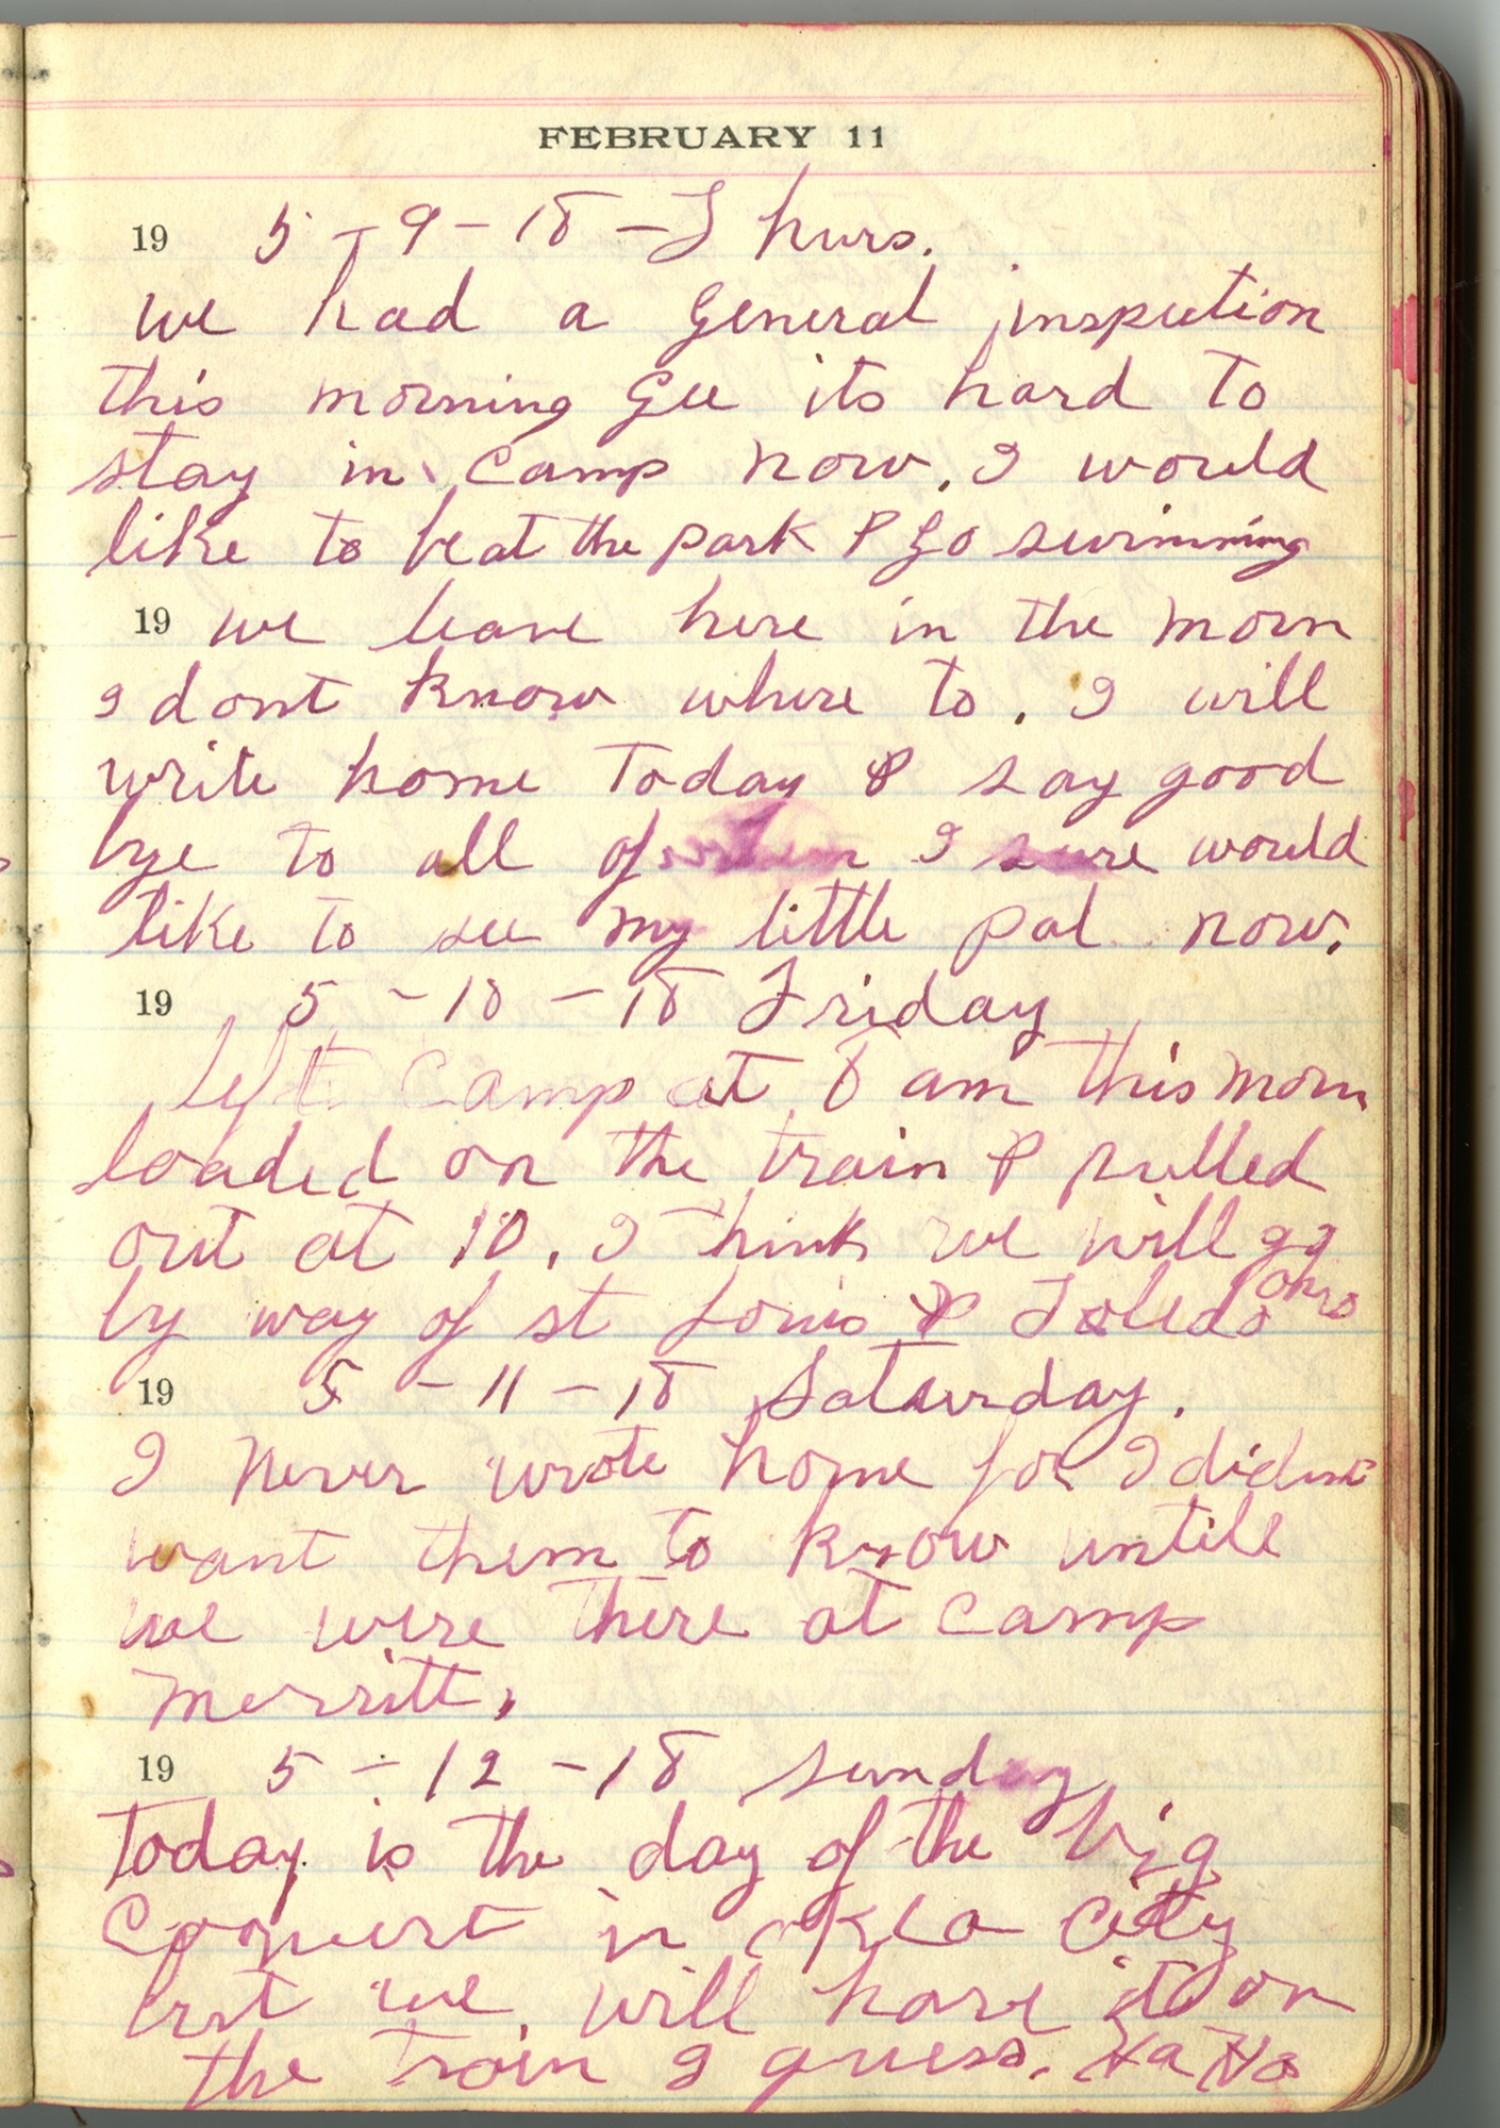 FEBRUARY 11
19 5-9-18-Thurs.
we had a General inspection
this morning Gee its hard to
stay in camp now, I would
like to be at the park & go swimming
19 we leave here in the morn
I dont know where to. I will
write home today & say good
bye to all of them I sure would
like to see my little pal now.
19 5-10-18 Friday
Left Camp at 8 am this morn
loaded on the train & pulled
out at 10. I think we will go
by way of st Louis & Toledo Ohio
19 5-11-18 Saturday.
I never wrote home for I didnt
want them to know untill
we were there at camp
merritt.
19 5-12-18 Sunday
Today is the day of the big
Concert in Okla City
but we will have it on
the train I guess. Ha Ha